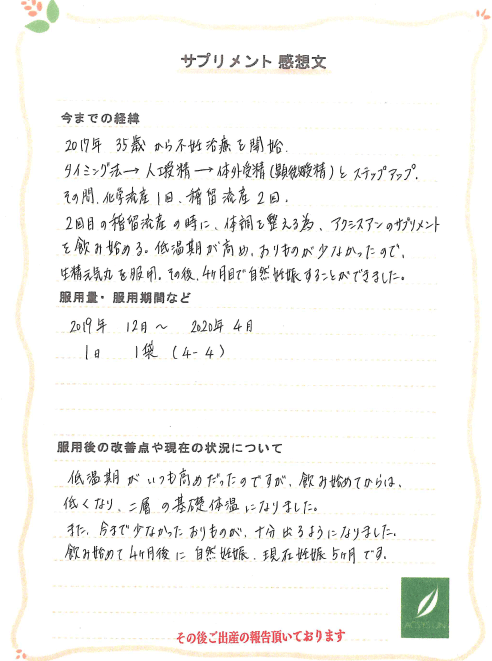 サプリメント 感想文
今までの経緯
2017年 35歳 から不妊治療を開始.
タイミング法→人工授精→体外受精(顕微授精)とステップアップ.
その間、化学流産1回、稽留流産2回.
2回目の稽留流産の時に、体調を整える為、アクシスアンのサプリメント
を飲み始める。低温期が高め、おりものが少なかったので、
生精元気丸を服用。その後、4ヶ月目で自然妊娠することができました。
服用量・服用期間など
2019年 12月〜 2020年4月
1日 1袋 (4-4)
服用後の改善点や現在の状況について
低温期がいつも高めだったのですが、飲み始めてからは、
低くなり、二層の基礎体温になりました。
また、今まで少なかったおりものが、十分出るようになりました。
飲み始めて4ヶ月後に自然妊娠、現在妊娠5ヶ月です。
その後ご出産の報告頂いております